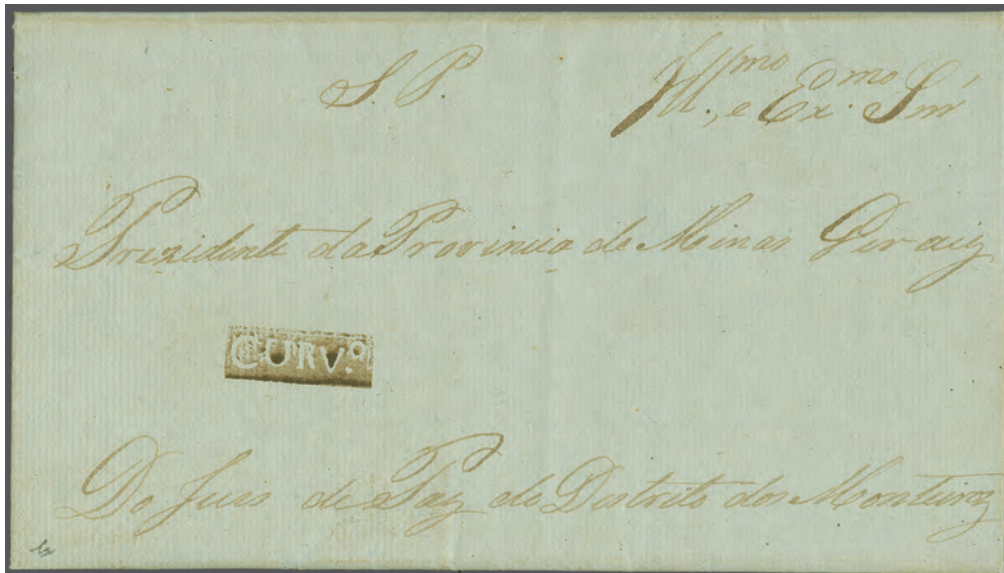 S. P. Ill.mo e Ex.mo Snr
Prezidente da Provincia de Minas Geraiz
CURV.º
Do Juis de Paz do Distrito dos Monteiroz